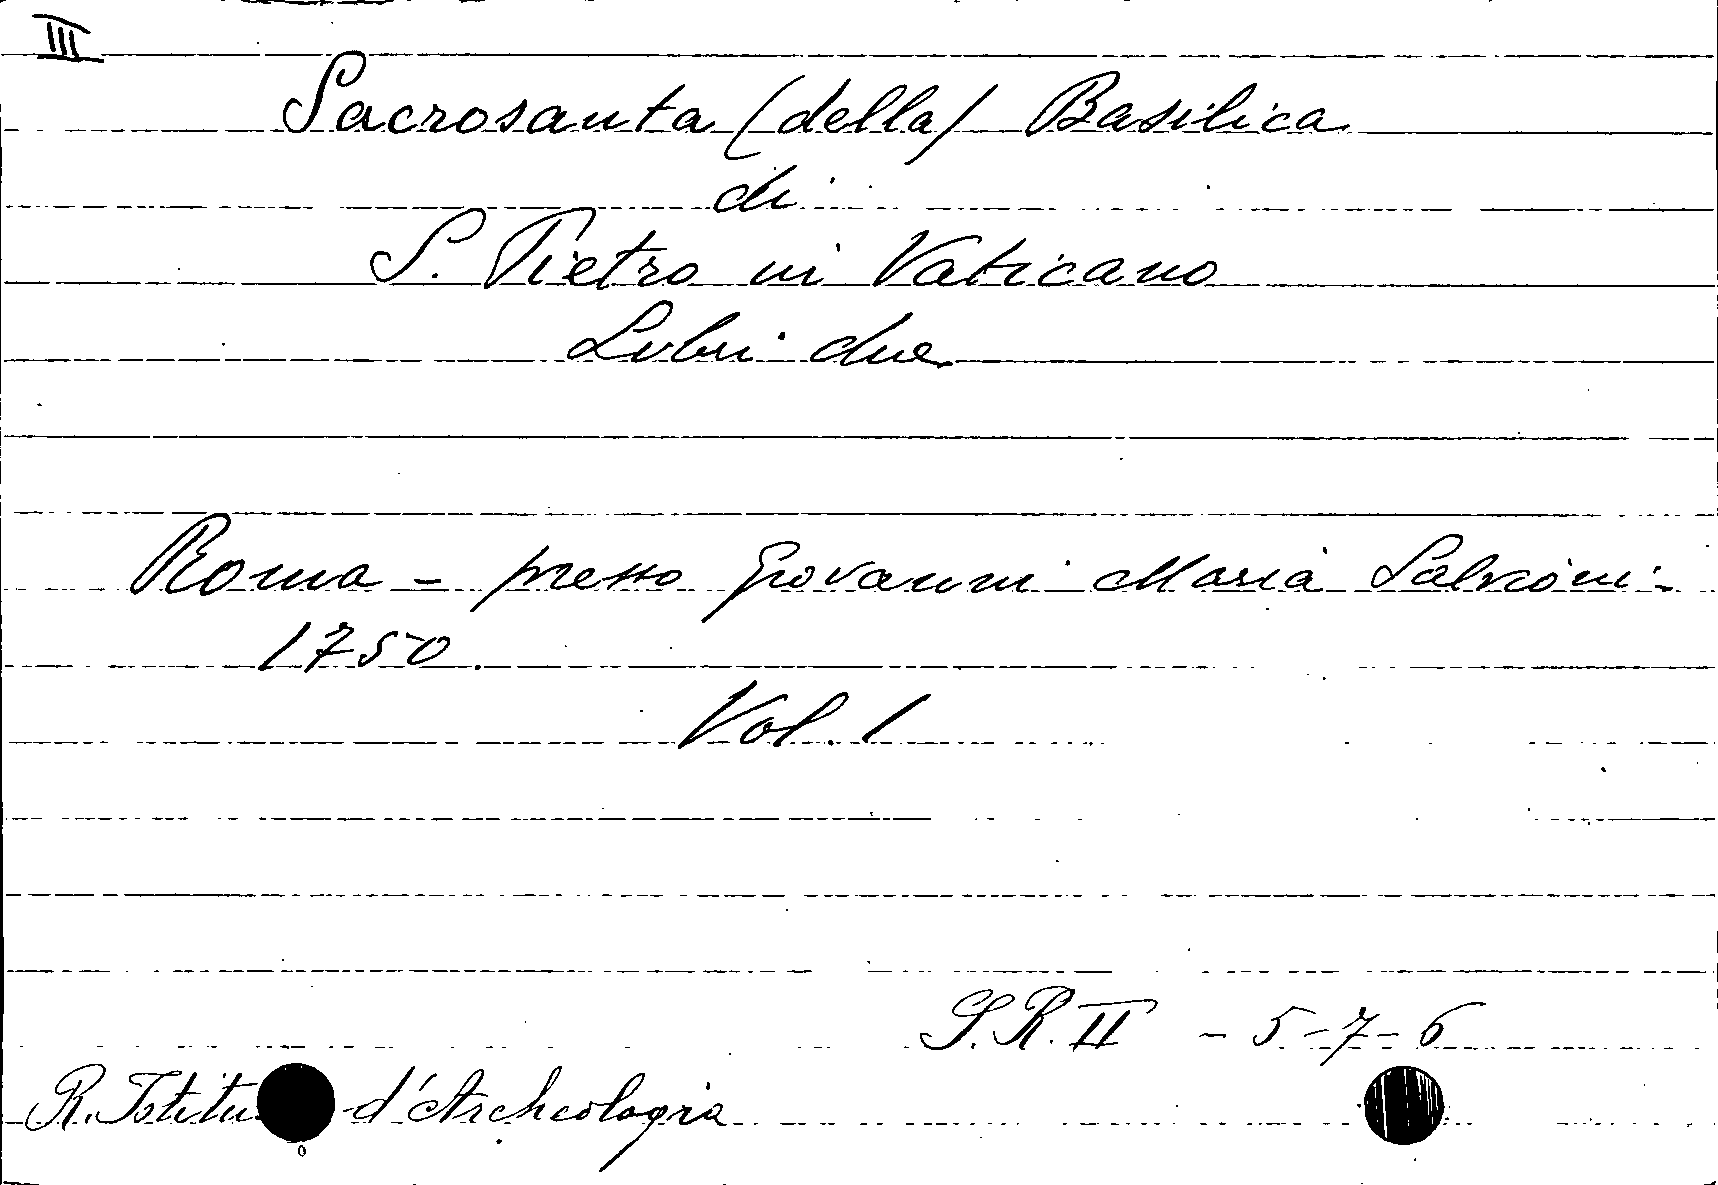 III
Sacrosanta (della) Basilica
di
S. Pietro in Vaticano
Libri due
Roma - presso Giovanni Maria Salvioni -
1750.
Vol. 1
S.R. II - 5-7-6
R. Istitu d'Archeologia